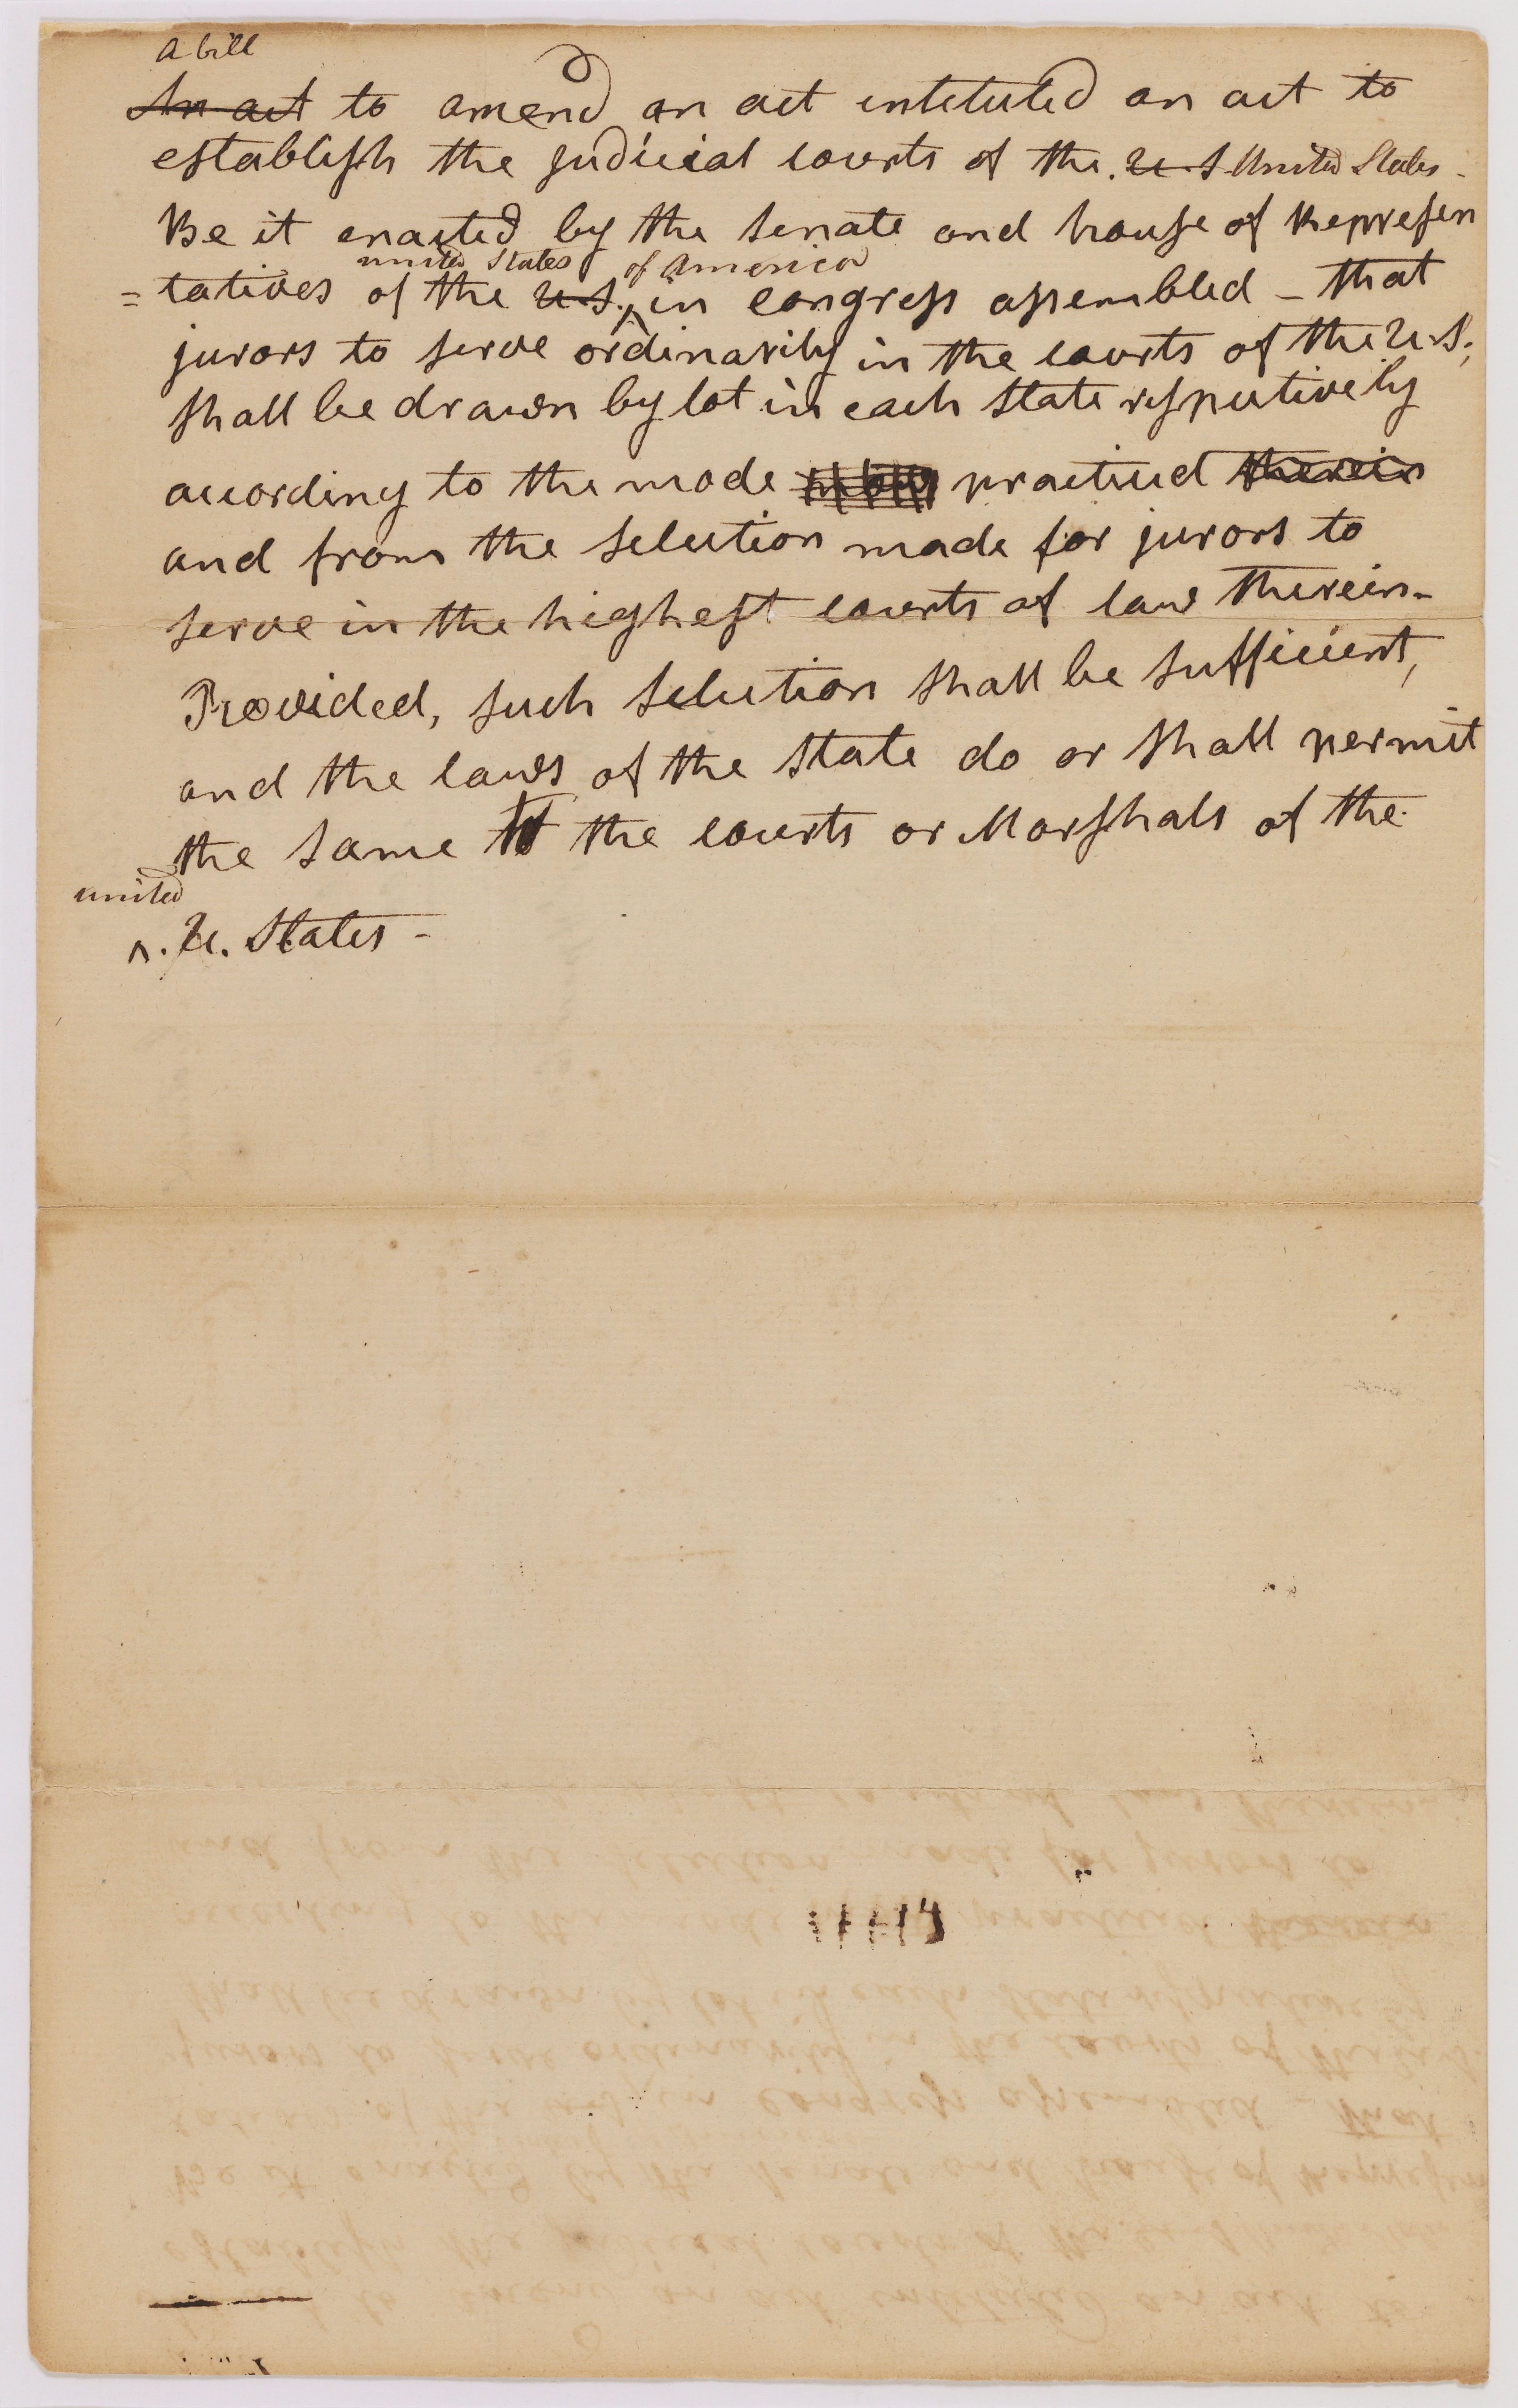 a bill
An act to amend an act intituled an act to
establish the judicial courts of the. U. S United States -
Be it enacted by the Senate and house of Represen
united States of America
= tatives of the U. S., in congress assembled - that
jurors to serve ordinarily in the courts of the U. S.,
shall be drawn by lot in each state respectively
according to the mode practiced therein
and from the selection made for jurors to
serve in the highest courts of law therein -
Provided, such selection shall be sufficient,
and the laws of the state do or shall permit
the same to the courts or Marshals of the
united
^. U. States -